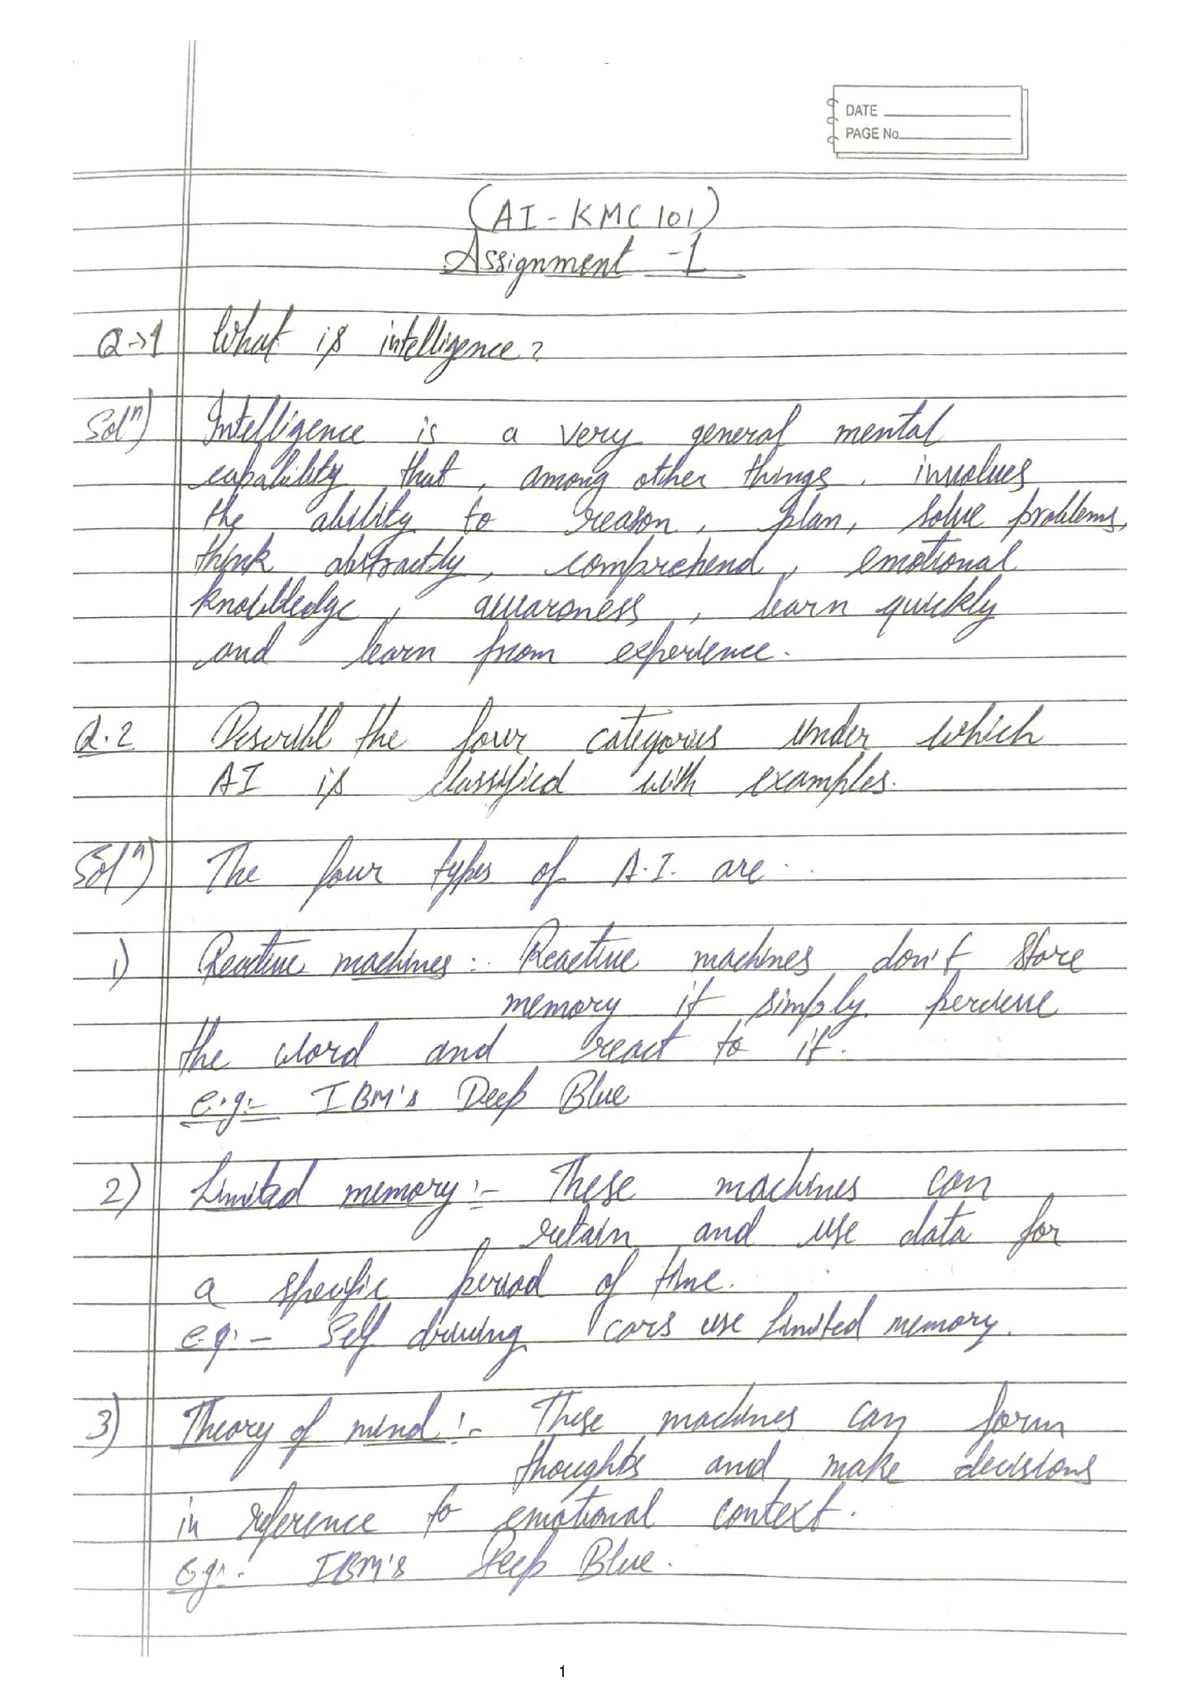 DATE
PAGE No.
(AI-KMC101)
Assignment -1
Q→1 What is intelligence?
Solⁿ) Intelligence is a very general mental
capability that, among other things, involves
the ability to reason, plan, solve problems,
think abstractly, comprehend, emotional
knowledge, awareness, learn quickly
and learn from experience.
Q.2 Describe the four categories under which
AI is classified with examples.
Solⁿ) The four types of A.I. are..
1) Reactive machines:- Reactive machines don't store
memory it simply percieve
the word and react to it.
e.g:- IBM's Deep Blue
2) Limited memory:- These machines can
retain and use data for
a specific period of time.
e.g:- Self driving cars use limited memory.
3) Theory of mind:- These machines can form
thoughts and make decisions
in reference to emotional context.
e.g:- IBM's Deep Blue.
1